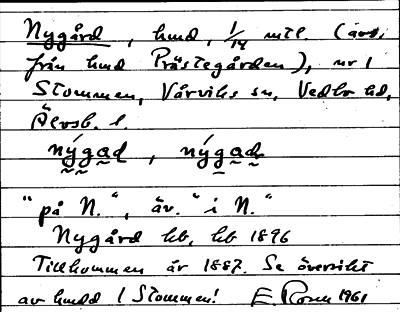 Nygård, hmd, 1/14 mtl. (avs.
från hmd Prästegården), nr 1
Stommen, Vårviks sn, Vedbo hd,
Älvsb. l.
nýgad, nýgad
"på N.", äv. "i N."
Nygård kb, kb 1896
Tillkommen år 1887. Se översikt
av hmdd / Stommen! E. Rosen 1961